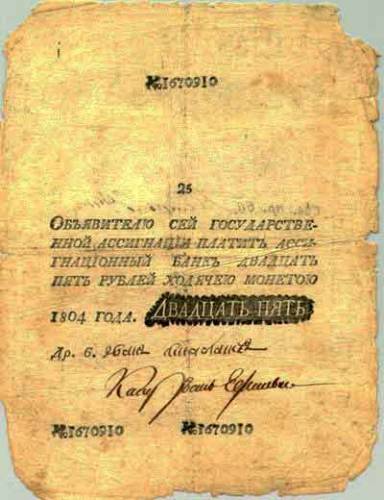 №1670910
25
Объявителю сей государстве-
нной ассигнацïи платитъ асси-
гнацïонный банкъ двадцать
пять рублей ходячею монетою
1804 года. Двадцать пять
№1670910 №1670910